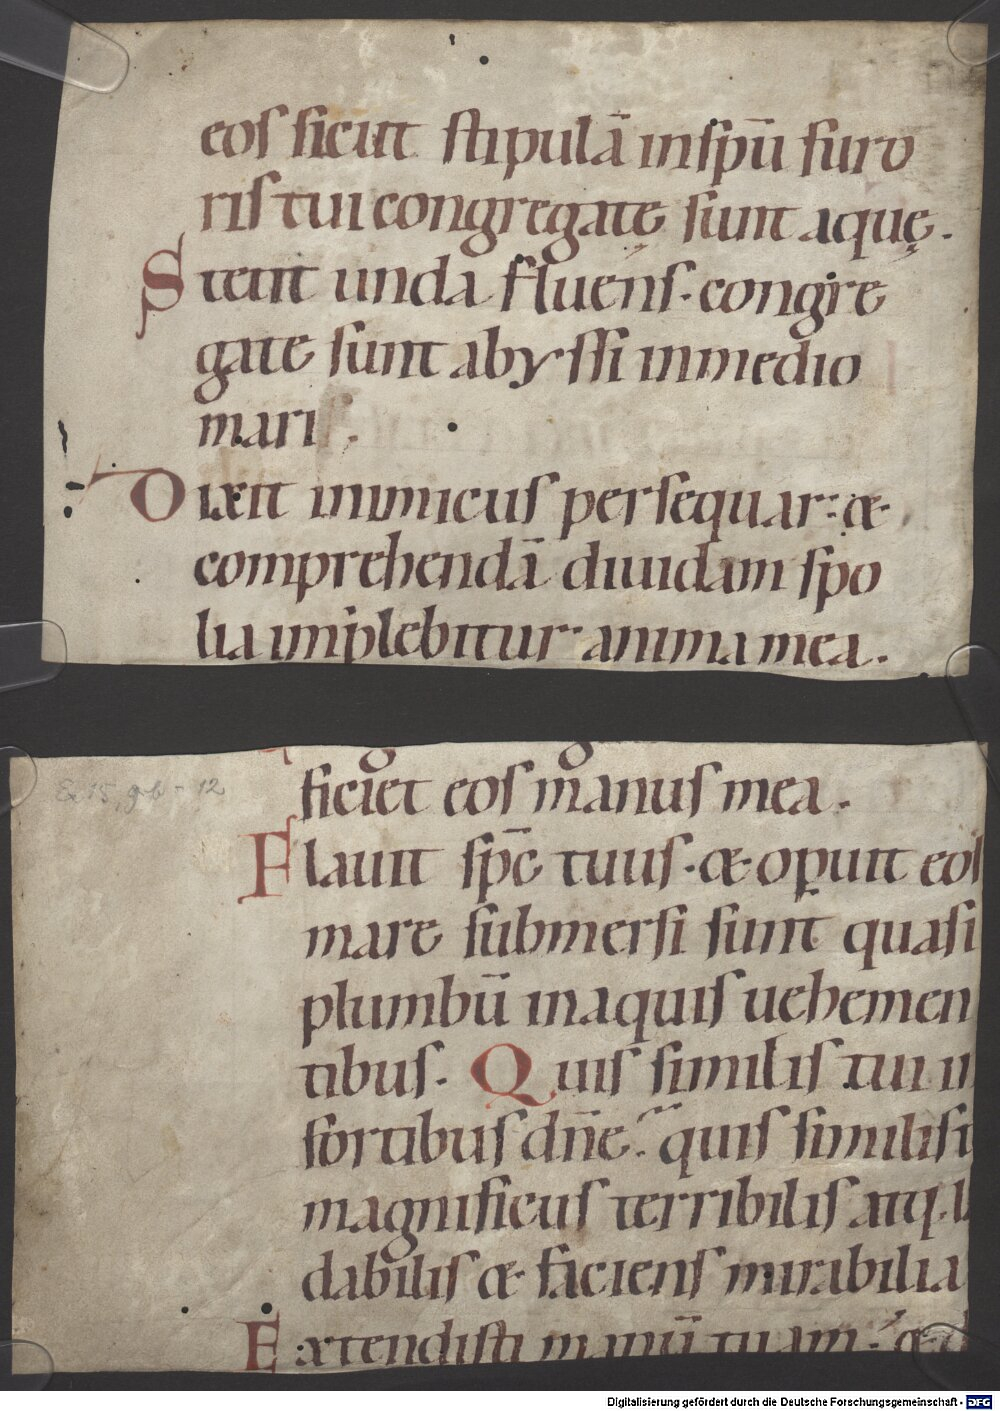 eos sicut stipulā inspū furo
ris tui congregatę sunt aquę.
Stetit unda fluens. congre
gate sunt abyssi inmedio
mari.
Dixit inimicus persequar: &
comprehendā diuidam spo
lia implebitur anima mea.
Ex 15, 9b - 12
ficiet eos manus mea.
Flauit spc tuus. & opuit eos
mare submersi sunt quasi
plumbū inaquis uehemen
tibus. Quis similis tui in
fortibus dn̄e. quis similis
magnificus terribilis atq. l
dabilis & faciens mirabilia
Extendisti manū tuam. & d
Digitalisierung gefördert durch die Deutsche Forschungsgemeinschaft - DFG